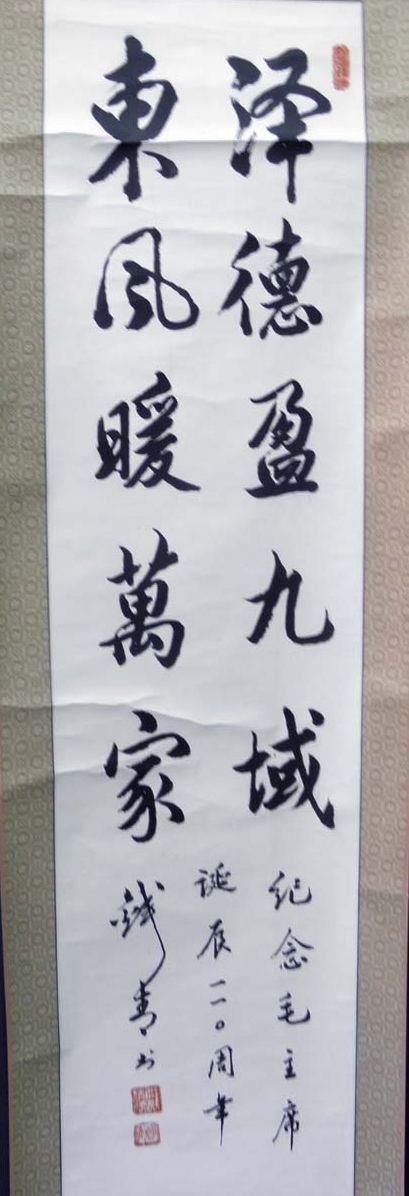 泽德盈九域
東风暖萬家
纪念毛主席
诞辰一一〇周年
青书